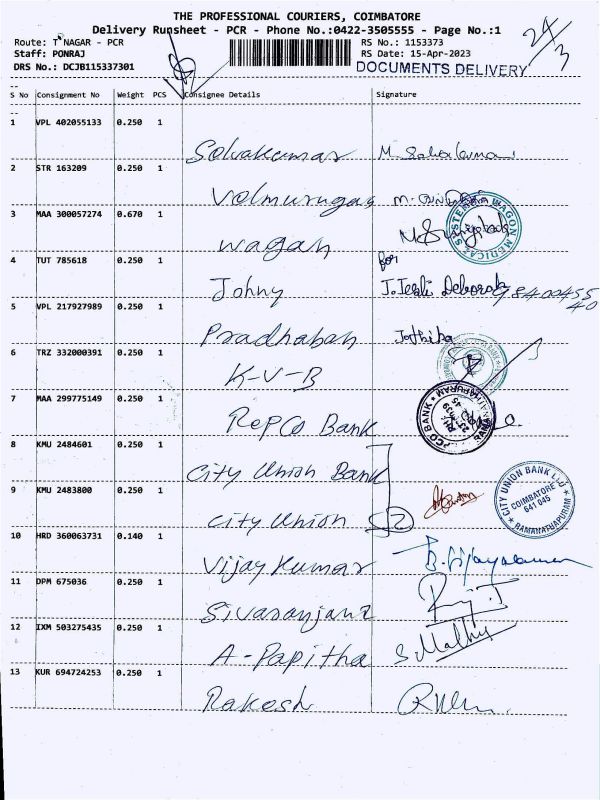 THE PROFESSIONAL COURIERS, COIMBATORE
Delivery Runsheet - PCR - Phone No.:0422-3505555 - Page No.:1
Route: T NAGAR - PCR RS No.: 1153373
Staff: PONRAJ RS Date: 15-Apr-2023
DRS No.: DCJB115337301 DOCUMENTS DELIVERY
24/3
S No Consignment No Weight PCS Consignee Details Signature
1 VPL 402055133 0.250 1
Selvakumar
2 STR 163209 0.250 1
Velmurugan
3 MAA 300057274 0.670 1
Wagan
4 TUT 785618 0.250 1
for
Johny J. Jesli Deborah 98400455
40
5 VPL 217927989 0.250 1
Pradhaban Jothika
6 TRZ 332000391 0.250 1
K-V-B
7 MAA 299775149 0.250 1
Repco Bank
8 KMU 2484601 0.250 1
City Union Bank
9 KMU 2483800 0.250 1
City Union 2
CITY UNION BANK Ltd
COIMBATORE
641 045
RAMANATHAPURAM
10 HRD 360063731 0.140 1
Vijay Kumar B. Vijayakumar
11 DPM 675036 0.250 1
Sivaranjani
12 IXM 503275435 0.250 1
A-Papitha S. Mathy
13 KUR 694724253 0.250 1
Rakesh